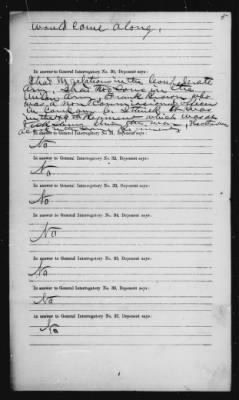 5
would come along,
In answer to General Interrogatory No. 30, Deponent says:
I had no relations in the Confederate
Army. I had one in the
Union Army. Frank
was a non Commissioned officer
in Company
in the Regiment which was
the war,
In answer to General Interrogatory No. 31, Deponent says:
No
In answer to General Interrogatory No. 32, Deponent says:
No
In answer to General Interrogatory No. 33, Deponent says:
No
In answer to General Interrogatory No. 34, Deponent says:
No
In answer to General Interrogatory No. 35, Deponent says:
No
In answer to General Interrogatory No. 36, Deponent says:
No
In answer to General Interrogatory No. 37, Deponent says:
No